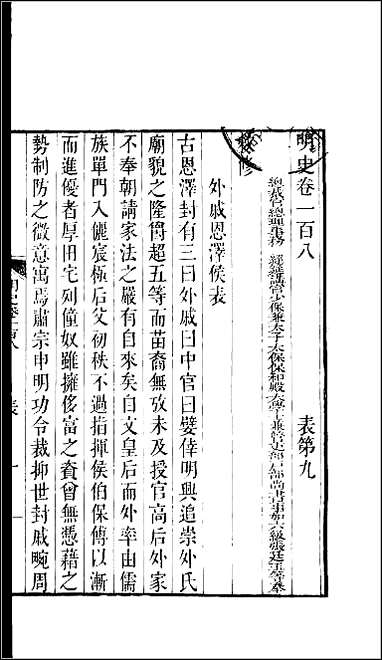 明史卷一百八
表第九
總裁官總理事務經筵講官少保兼太子太保保和殿大學士兼管吏部戶部尚書事加六級張廷玉等奉
敕修
外戚恩澤侯表
古恩澤封有三曰外戚曰中官曰嬖倖明興追崇外氏
廟貌之隆爵超五等而苗裔無攷未及授官高后外家
不奉朝請家法之嚴有自來矣自文皇后而外率由儒
族單門入儷宸極后父初秩不過指揮侯伯保傅以漸
而進優者厚田宅列僮奴雖擁侈富之資曾無憑藉之
勢制防之微意寓焉肅宗申明功令裁抑世封戚畹周